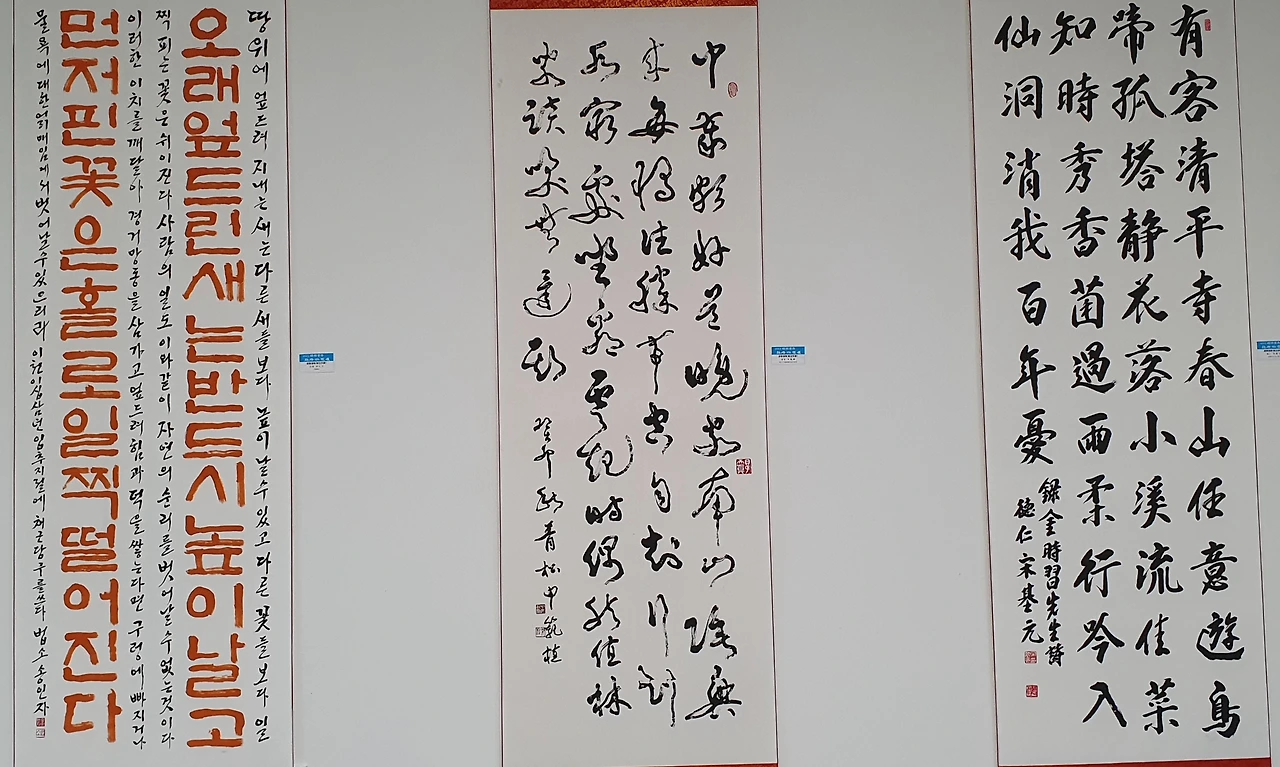 땅위에 엎드려 지내는 새는 다른 새들보다 높이 날 수 있고 다른 꽃들보다 일
오래엎드린새는반드시높이날고
찍 피는 꽃은 쉬이 진다 사람의 일도 이와 같이 자연의 순리를 벗어날 수 없는 것이다
이러한 이치를 깨달아 경거망동을 삼가고 엎드려 힘과 덕을 쌓는다면 구렁에 빠지거나
먼저핀꽃은홀로일찍떨어진다
물욕에 대한 얽매임에서 벗어날 수 있으리라 이천이십삼년 입추지절에 채근담구를쓰다 법소 송인자
中歲頗好道晚家南山陲興
來每獨往勝事空自知行到
水窮處坐看雲起時偶然值林
叟談笑無還期
癸卯秋青松申範植
有客清平寺春山任意遊鳥
啼孤塔靜花落小溪流佳菜
知時秀香菌過雨柔行吟入
仙洞消我百年憂
錄金時習先生詩
德仁宋基元